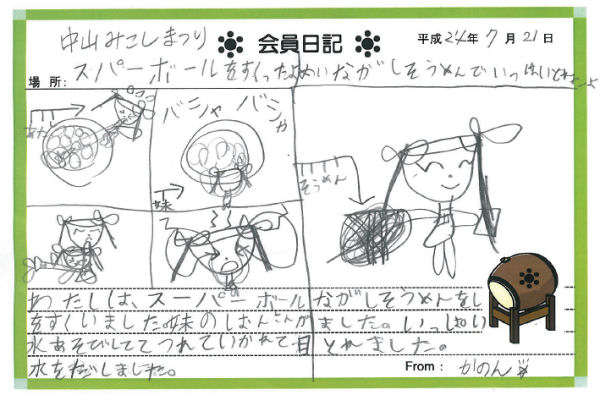 中山みこしまつり
会員日記
平成24年7月21日
場所:
スーパーボールをすくった
ながしそうめんで
バシャ バシャ
妹
そうめん
わたしは、スーパーボール
をすくいました。妹の
水あそびしてて つれていかれて
水をだしました。
ながしそうめんをし
ました。いっぱい
とれました。
From: かのん